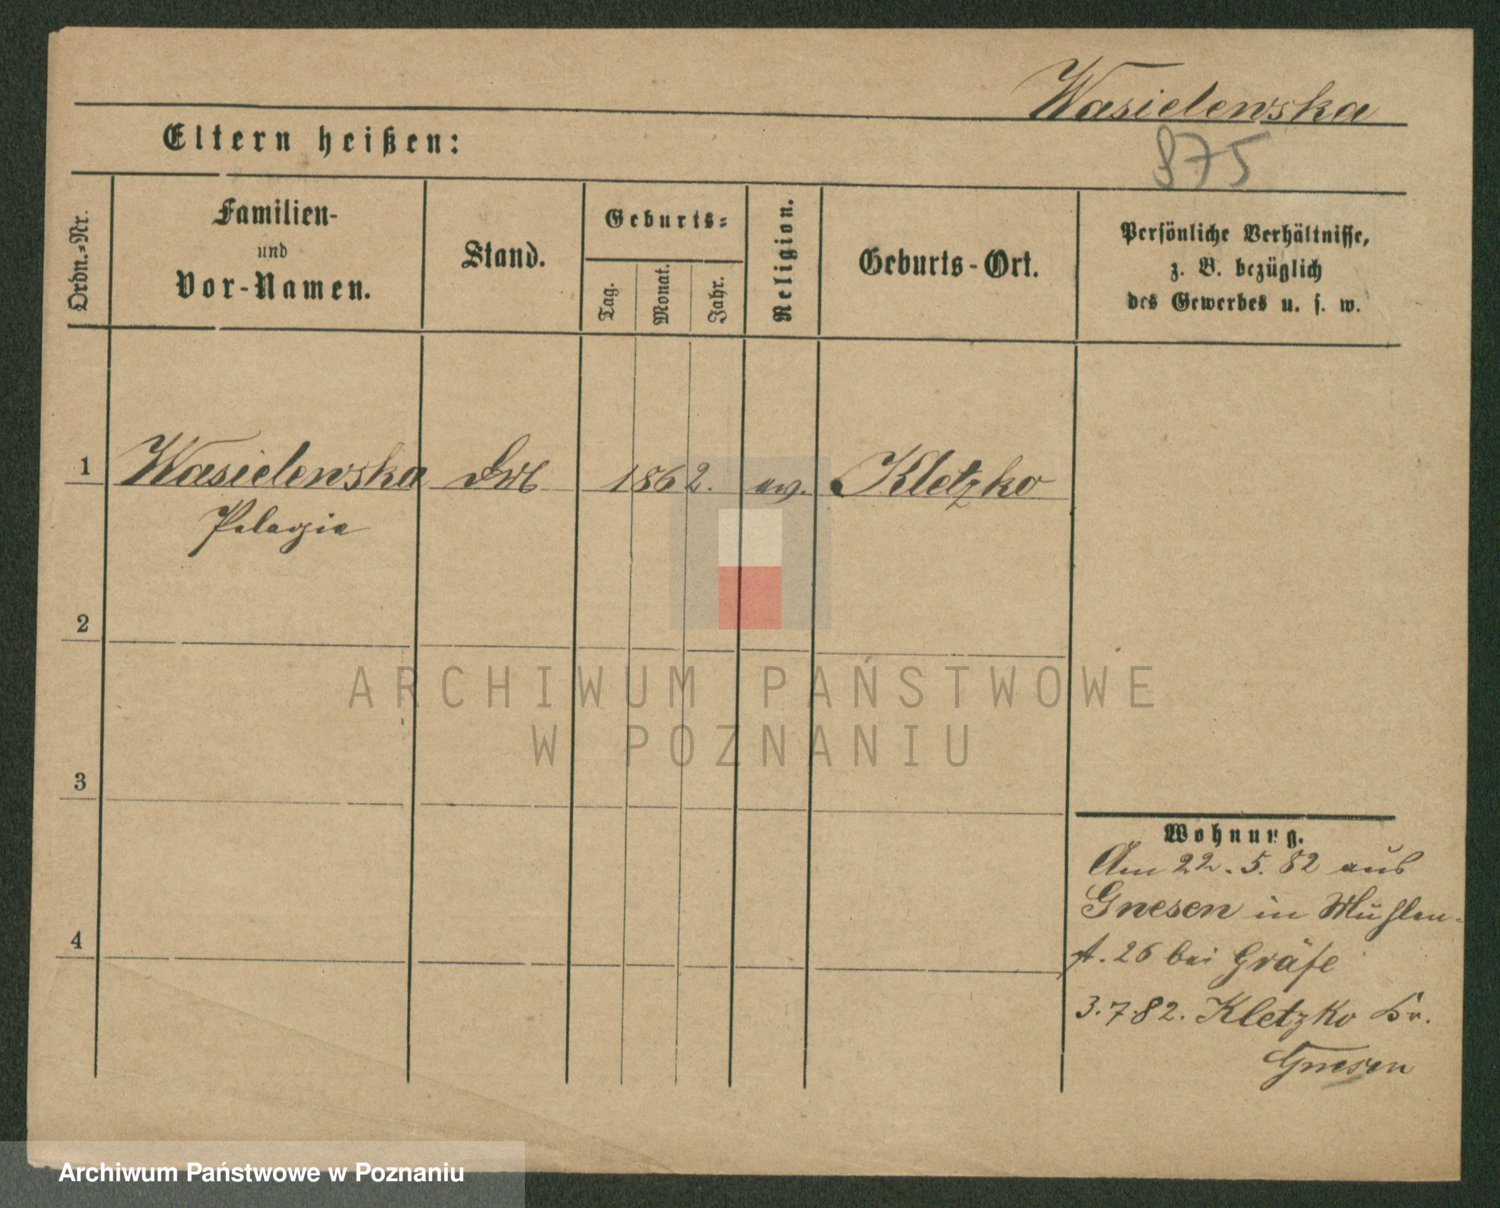 Wasielewska
Eltern heißen:
875
Ordn.=Nr.
Familien-
und
Vor-Namen.
Stand.
Geburts=
Tag.
Monat.
Jahr.
Religion.
Geburts-Ort.
Persönliche Verhältnisse,
z. B. bezüglich
des Gewerbes u. s. w.
1 Wasielewska 1862. Kletzko
Pelagia
2
3
4
Wohnung.
Am 22. 5. 82 aus
Gnesen in Mühlen-
st. 26 bei Gräfe
3.7.82. Kletzko Kr.
Gnesen
ARCHIWUM PAŃSTWOWE
W POZNANIU
Archiwum Państwowe w Poznaniu